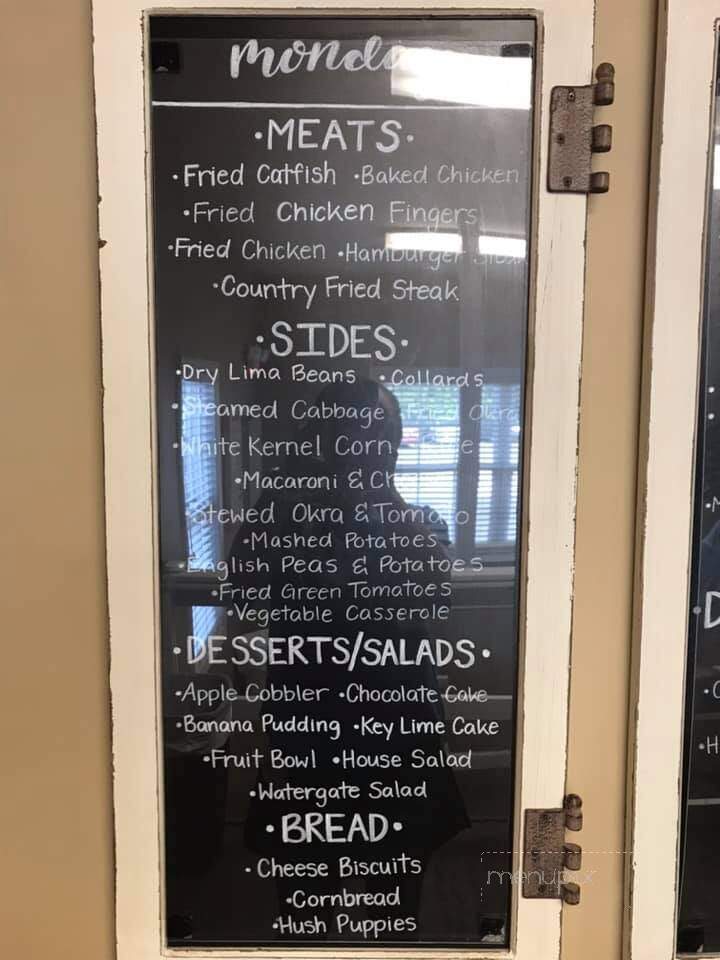 monda
·MEATS·
·Fried Catfish ·Baked Chicken
·Fried Chicken Fingers
·Fried Chicken ·Hamburger
·Country Fried Steak
·SIDES·
·Dry Lima Beans ·Collards
·Steamed Cabbage ·Fried Okra
·White Kernel Corn
·Macaroni &
·Stewed Okra & Tomato
·Mashed Potatoes
·English Peas & Potatoes
·Fried Green Tomatoes
·Vegetable Casserole
·DESSERTS/SALADS·
·Apple Cobbler ·Chocolate Cake
·Banana Pudding ·Key Lime Cake
·Fruit Bowl ·House Salad
·Watergate Salad
·BREAD·
·Cheese Biscuits
·Cornbread
·Hush Puppies
menupix